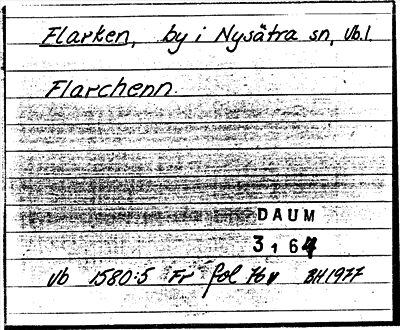 Flarken, by i Nysätra sn, Vb.l.
Flarchenn.
DAUM
3164
Vb 1580:5 Fr fol 76v BH1977